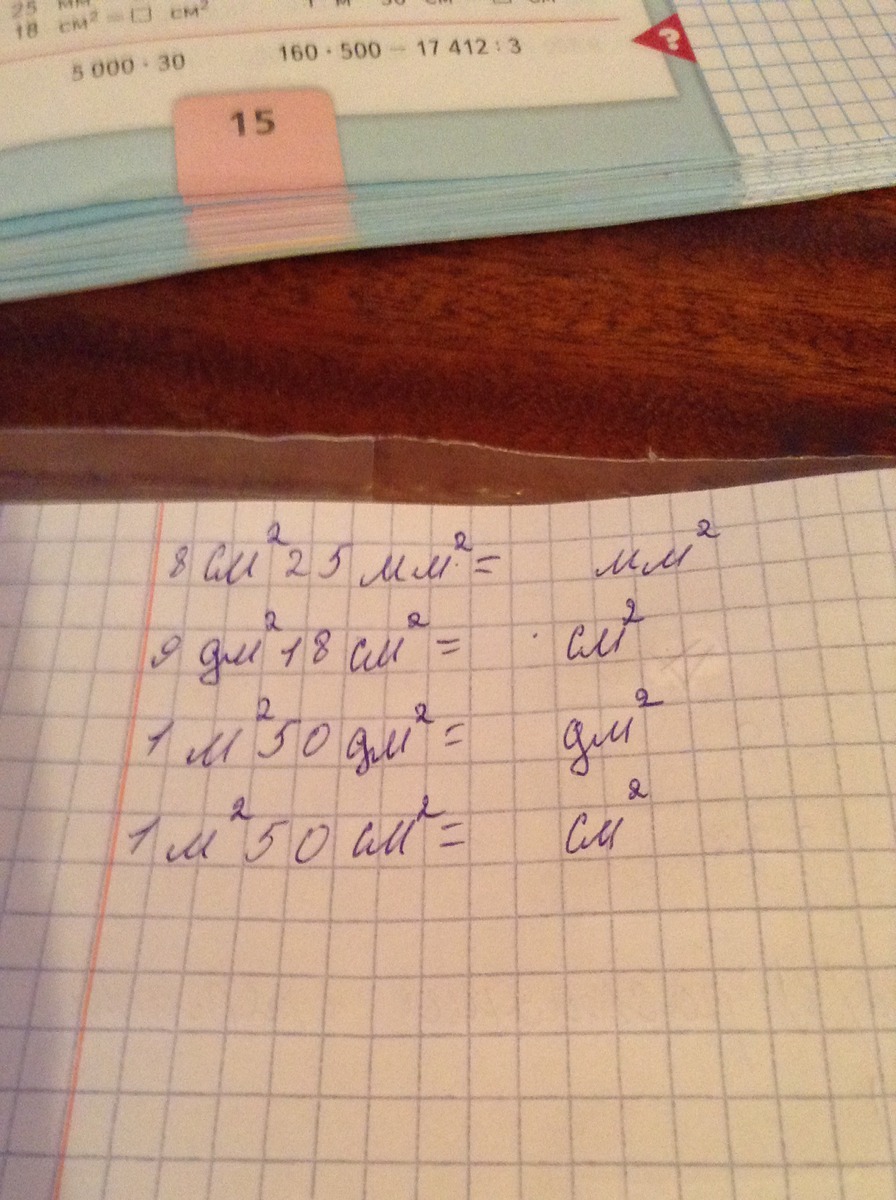 25 мм
18 см² = □ см²
5 000 · 30
160 · 500 − 17 412 : 3
?
15
8 см² 25 мм² = мм²
9 дм² 18 см² = см²
1 м² 50 дм² = дм²
1 м² 50 см² = см²